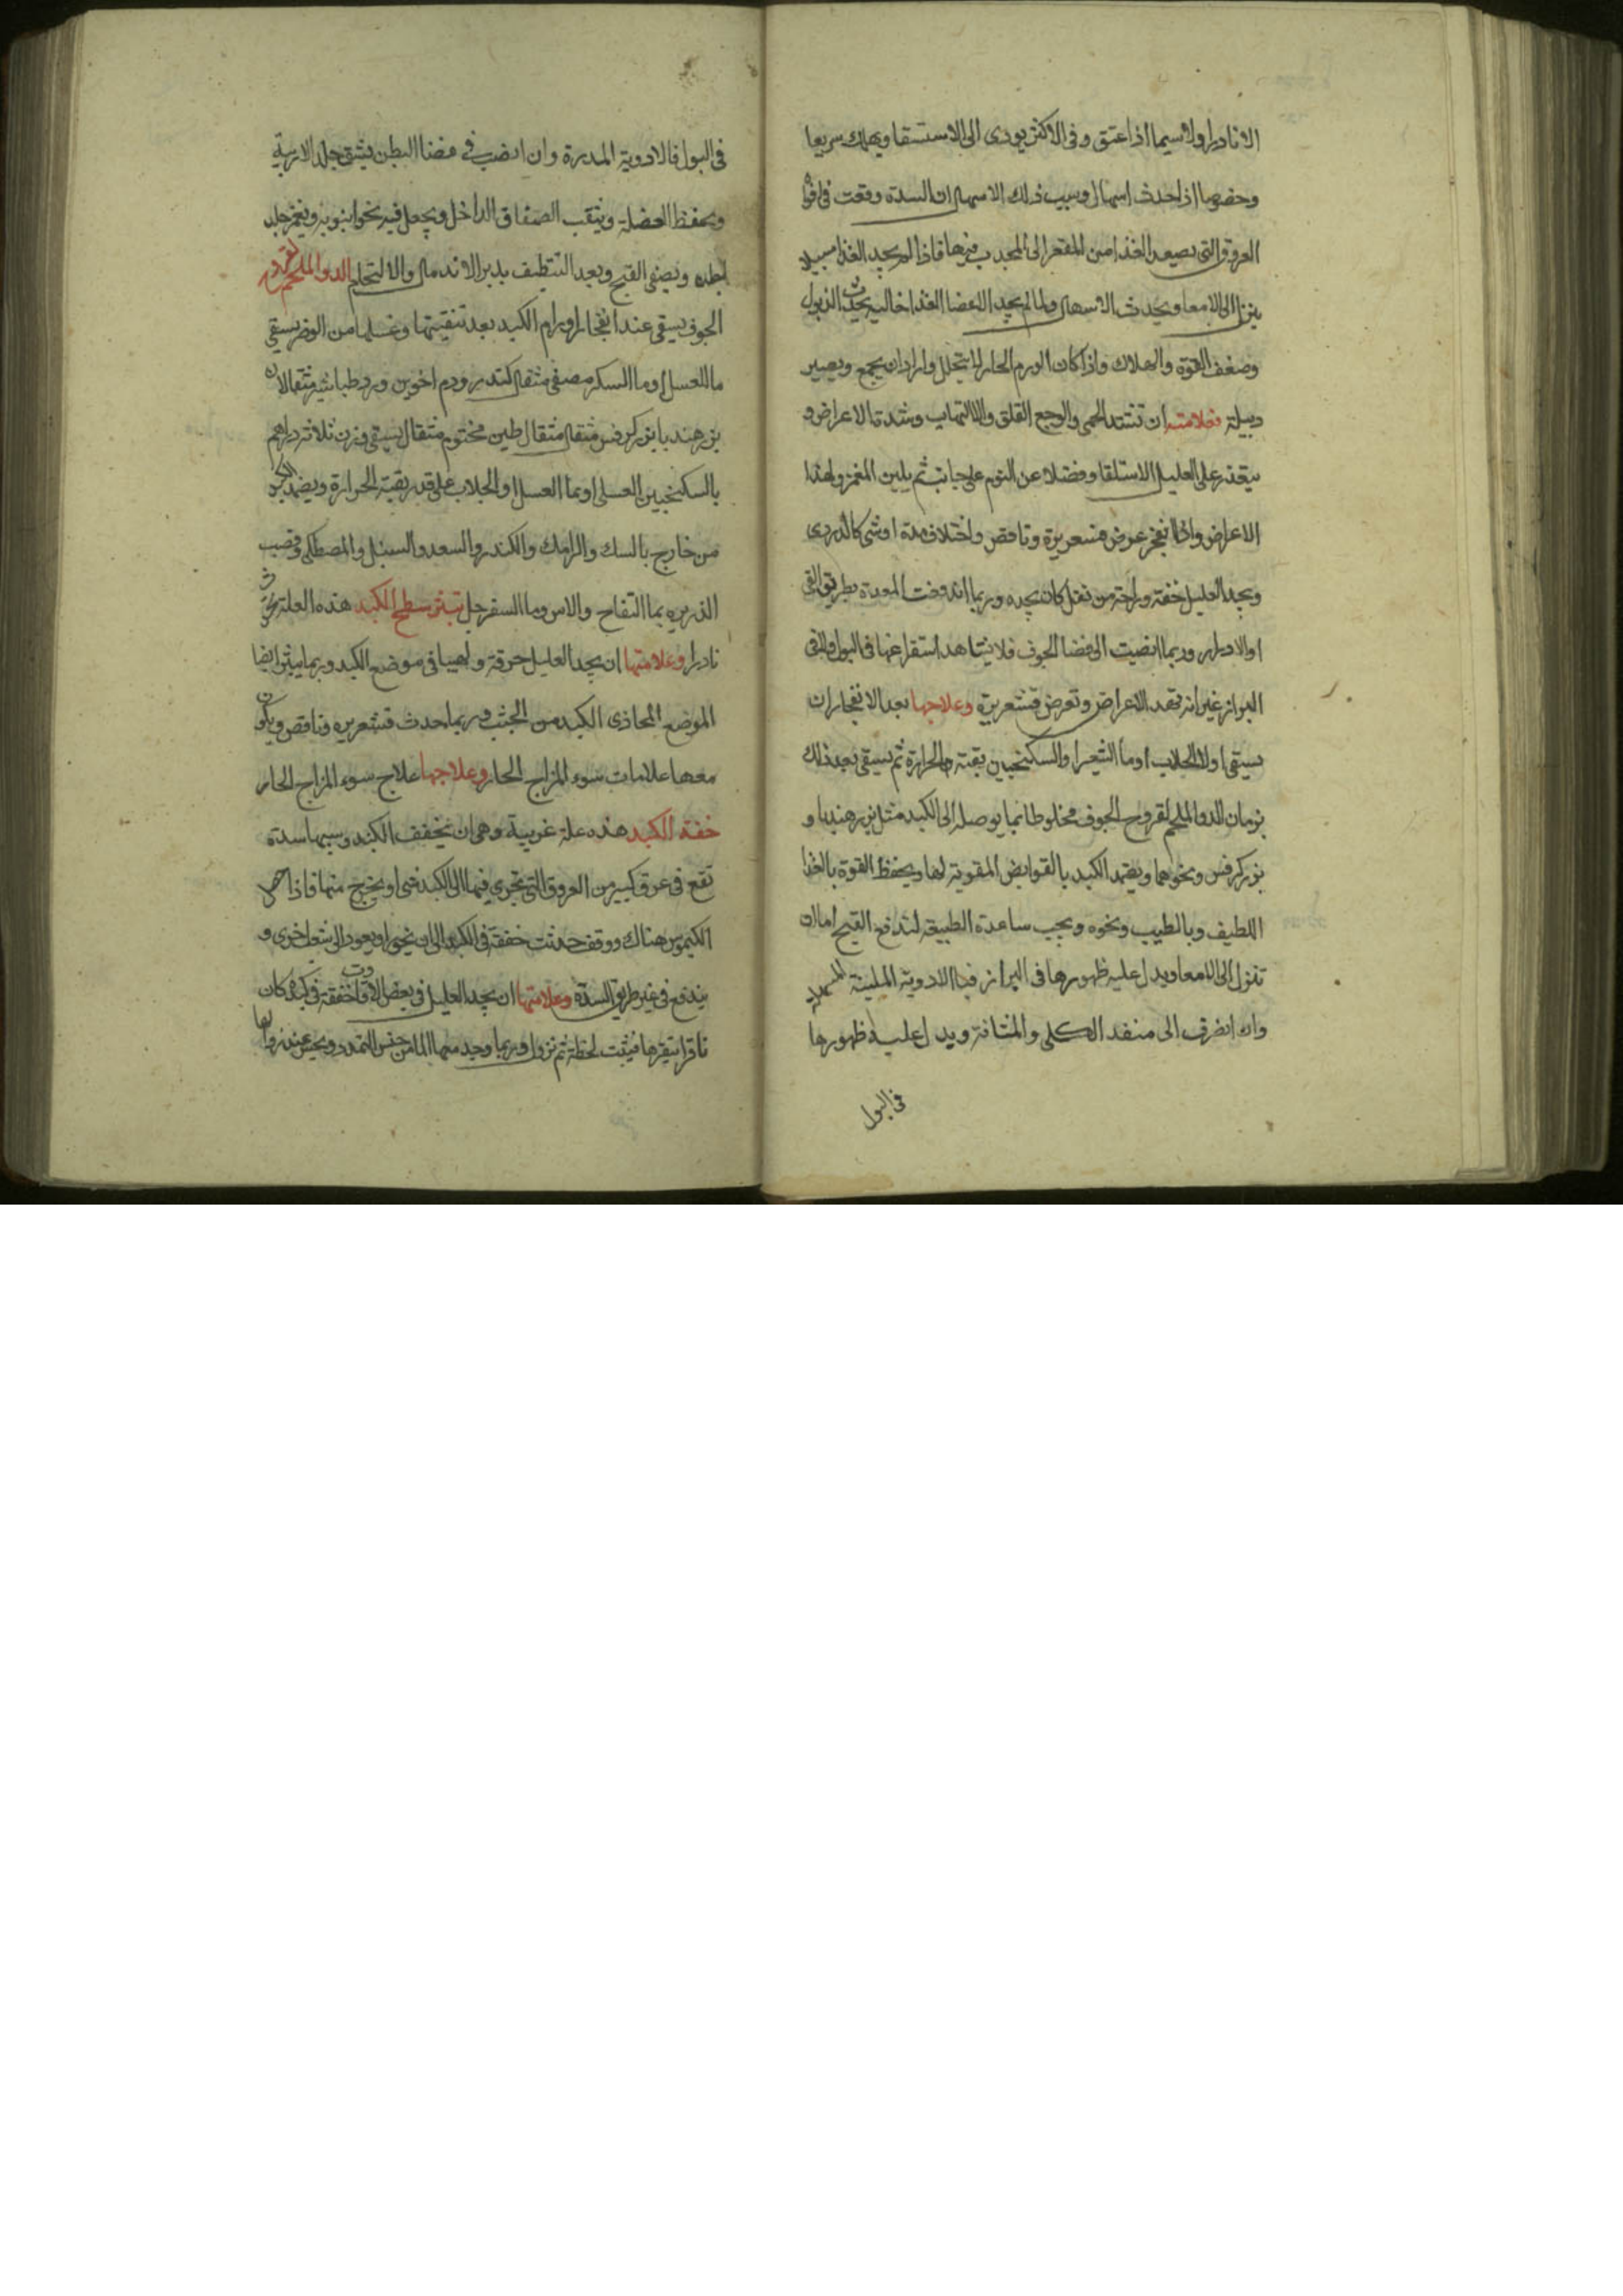 الا نادرا ولا سيما اذا عتق وفى الاكثر يودى الى الاستسقا ويهلك سريعا
وخصوصا اذا حدث اسهال وسبب ذلك الاسهال ان السدة وقعت فى افواه
العروق التى يصعد الغذا من المقعر الى المحدب فيها فاذا لم يجد الغذا سبيلا
ينزل الى الامعا ويحدث الاسهال ولما لم يجد الاعضا الغذا خاليه يحدث الذبول
وضعف القوة والهلاك واذا كان الورم الحار لا يتحلل واراد ان يجمع ويصير
دبيلة فعلامته ان تشتد الحمى والوجع القلق والالتهاب وشدة الاعراض و
يتعذر على العليل الاستلقا وفضلا عن النوم على جانب ثم يلين المغمز ولهذا
الاعراض واذا انفجر عرض قشعريرة ونافض واختلاف مدة او شى كالدردى
ويجد العليل خفة وراحة من ثقل كان يجده وربما اندفعت المعدة بطريق القى
او الادرار وربما انصبت الى فضا الجوف فلا يشاهد استفراغها فى البول والقى
البراز غير انه تهمد الاعراض وتعرض قشعريرة وعلاجها بعد الانفجار ان
يسقى اولا الجلاب او ماء الشعير او السكنجبين بقية الحرارة ثم يسقى بعد ذلك
بزمان الدوا الملحم لقروح الجوف مخلوطا بما يوصله الى الكبد مثل بزر هندبا و
بزر كرفس ونحوهما ويضمد الكبد بالقوابض المقوية لها ويحفظ القوة بالغذا
اللطيف وبالطيب ونحوه ويجب ساعدة الطبيعة لتدفع القيح اما ان
تنزل الى الامعا ويدل عليه ظهورها فى البراز فبالادوية الملينة المسهلة
وان انصرف الى منفد الكلى والمثانة ويدل عليه ظهورها
فى البول
فى البول فالادوية المدرة وان انصب فى فضا البطن فيشق جلد الاربية
ويحفظ العضلة ويثقب الصفاق الداخل ويجعل فيه نحو انبوبة ويغمز جلد
بطنه ويصفى القيح وبعد التنظيف يدبر الاندمال والالتحام الدوا الملحم لقروح
الجوف يسقى عند انفجار اورام الكبد بعد تنقيتها وغسلها من الوضر يسقى
ما العسل او ما السكر مصفى مثقال كندر ودم اخوين ورد طباشير مثقالان
بزر هندبا بزر كرفس مثقال مثقال طين مختوم مثقال يسقى وزن ثلاثة دراهم
بالسكنجبين العسلى او بما العسل او الجلاب على قدر بقية الحرارة ويضمد الكبد
من خارج بالسك والرامك والكندر والسعد والسنبل والمصطكى وقصب
الذريره بما التفاح والاس وما السفرجل تبثر سطح الكبد هذه العلة تحدث
نادرا وعلامتها ان يجد العليل حرقة ولهيبا فى موضع الكبد وربما يبثر ايضا
الموضع المحاذى الكبد من الجنب وربما حدث قشعريره ونافض ويكون
معها علامات سوء المزاج الحار وعلاجها علاج سوء المزاج الحار
خفة الكبد هذه علة غريبة وهى ان يخفف الكبد وسببها سدة
تقع فى عرق كبير من العروق التى تجرى فيها الى الكبد شى او يخرج منها فاذا حصل
الكيموس هناك ووقف حدثت خفقة فى الكبد الى ان ينحى او يعود الى شعب اخرى و
يندفع فى غير طريق السدة وعلامتها ان يجد العليل فى بعض الاوقات خفقة فى كبده كان
ناقرا ينقرها فيثبت لحظة ثم نزول وربما وجد معها الما من جنس التمدد ويحس عند زوالها